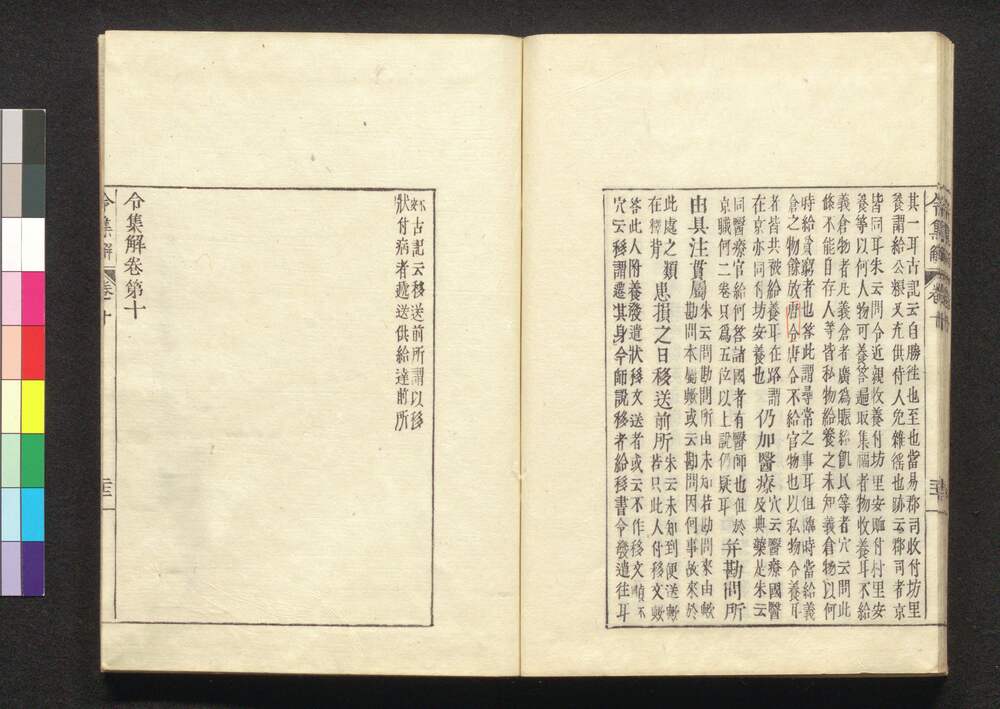 其一耳古記云自勝往也至也當易郡司收付坊里
養謂給公粮又充供侍人免雜徭也跡云郡司者京
皆同耳朱云問令近親收養付坊里安賉付村里安
養等以何人物可養答還取集福者物收養耳不給
義倉物者凡義倉者廣爲賑給飢民等者穴云問此
條不能自存人等皆私物給養之未知義倉物以何
時給貧窮者也答此謂尋常之事耳但臨時當給義
倉之物餘放唐令唐令不給官物也以私物令養耳
者皆共被給養耳在路謂仍加醫療穴云醫療國醫
在京亦同付坊安養也及典藥是朱云
同醫療官給何答諸國者有醫師也但於
京職何二卷只爲五位以上說仍疑耳并勘問所
由具注貫屬朱云問勘問所由未知若勘問來由歟
勘問本屬歟或云勘問因何事故來於
此處之類患損之日移送前所朱云未知到便送歟
在釋背若只此人付移文歟
答此人附養發遣狀移文送者或云不作移文順不
穴云移謂遷其身今師說移者給移書令發遣往耳
古記云移送前所謂以移
狀付病者遞送供給達前所
令集解卷第十
令集解
卷十